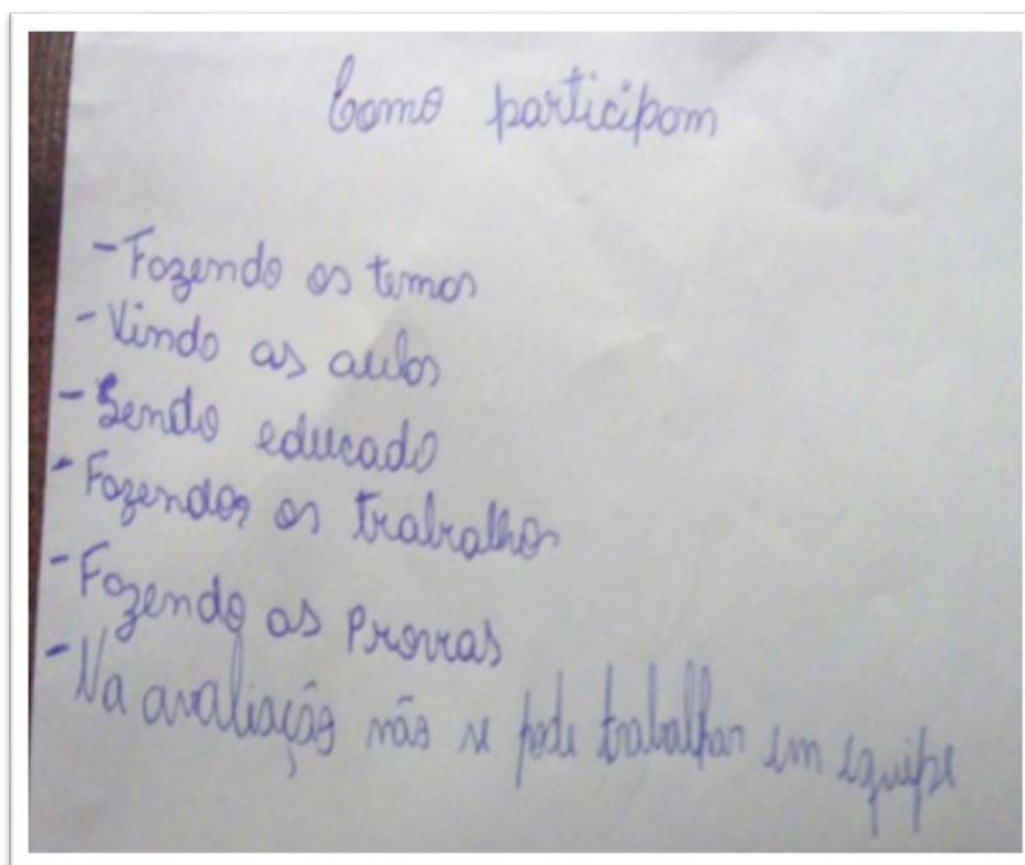 Como participam
- Fazendo os temas
- Vindo as aulas
- Sendo educado
- Fazendos os trabalhos
- Fazendo as Provas
- Na avaliação não se pode trabalhar em equipe